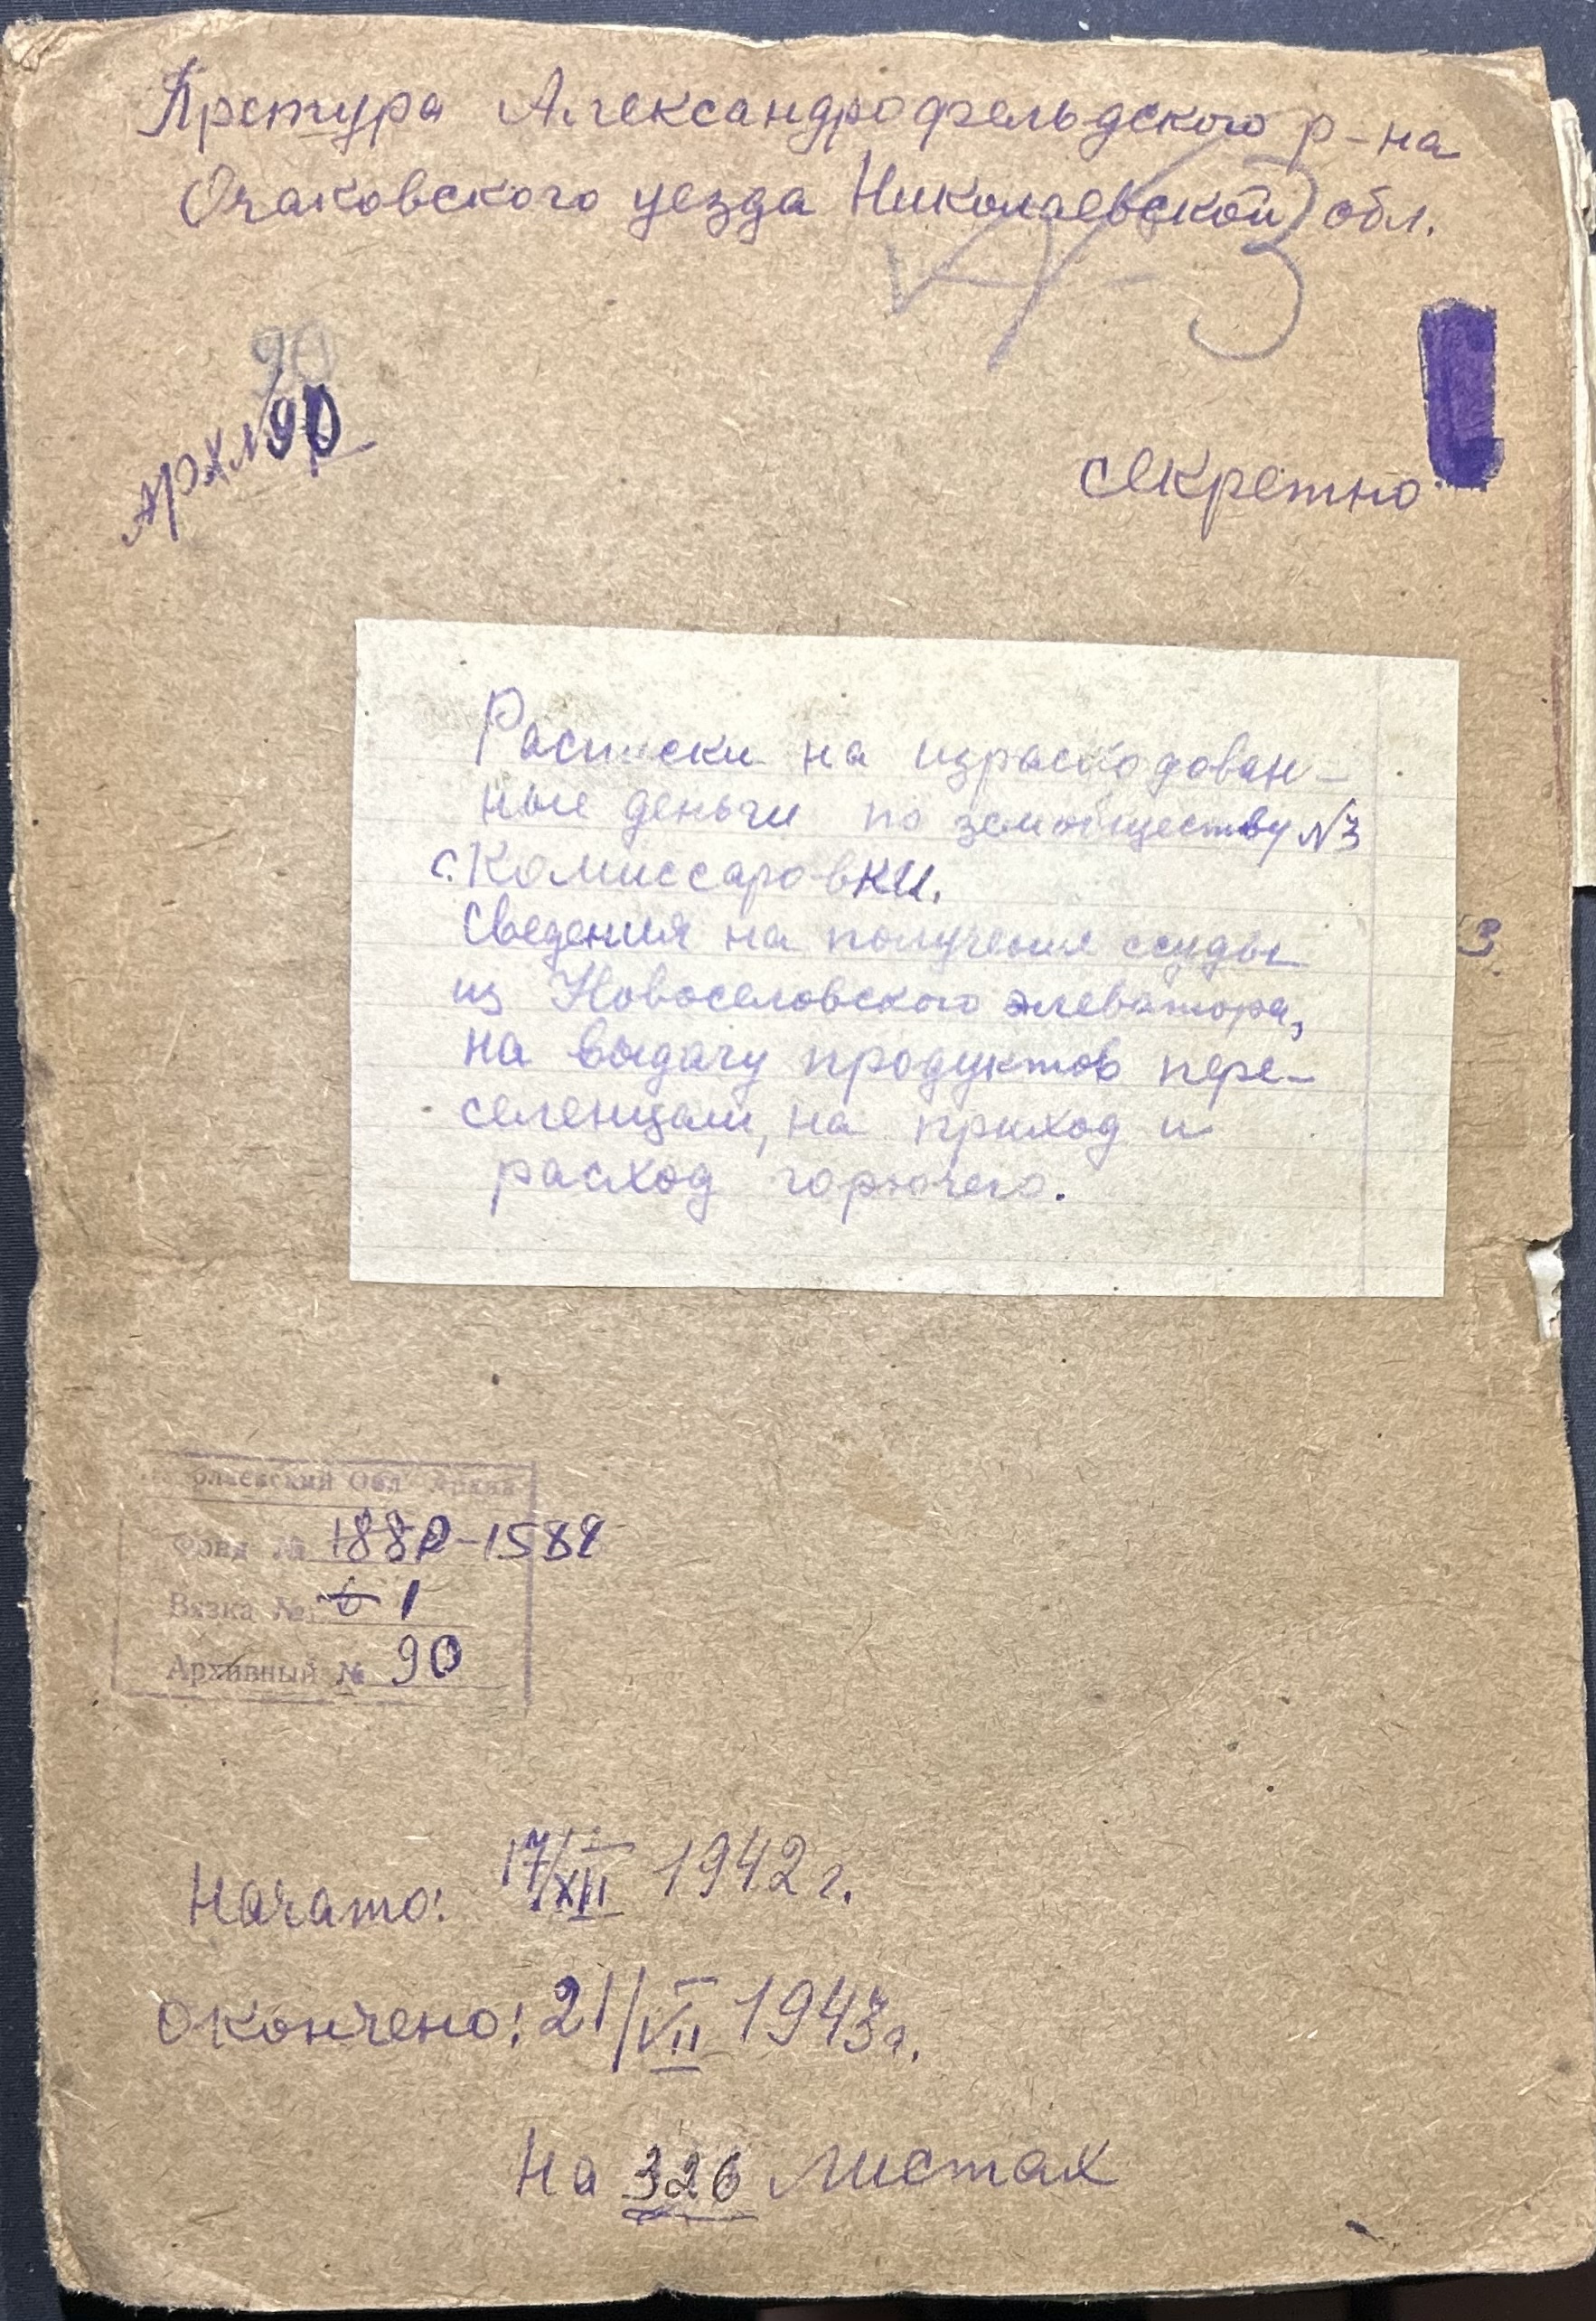 Претура Александрофельдского р-на
Очаковского уезда Николаевской обл.
-3
90
Арх№90
секретно
Расписки на израсходован-
ные деньги по земобществу №3
с. Комиссаровки.
Сведения на получения ссуды
из Новоселовского элеватора,
на выдачу продуктов пере-
селенцам, на приход и
расход горючего.
3
олаевский Обл Архив
Фонд №
Вязка № 6 1
Архивный № 90
Начато: 17/XII 1942 г.
Окончено: 21/VII 1943г.
На 326 листах